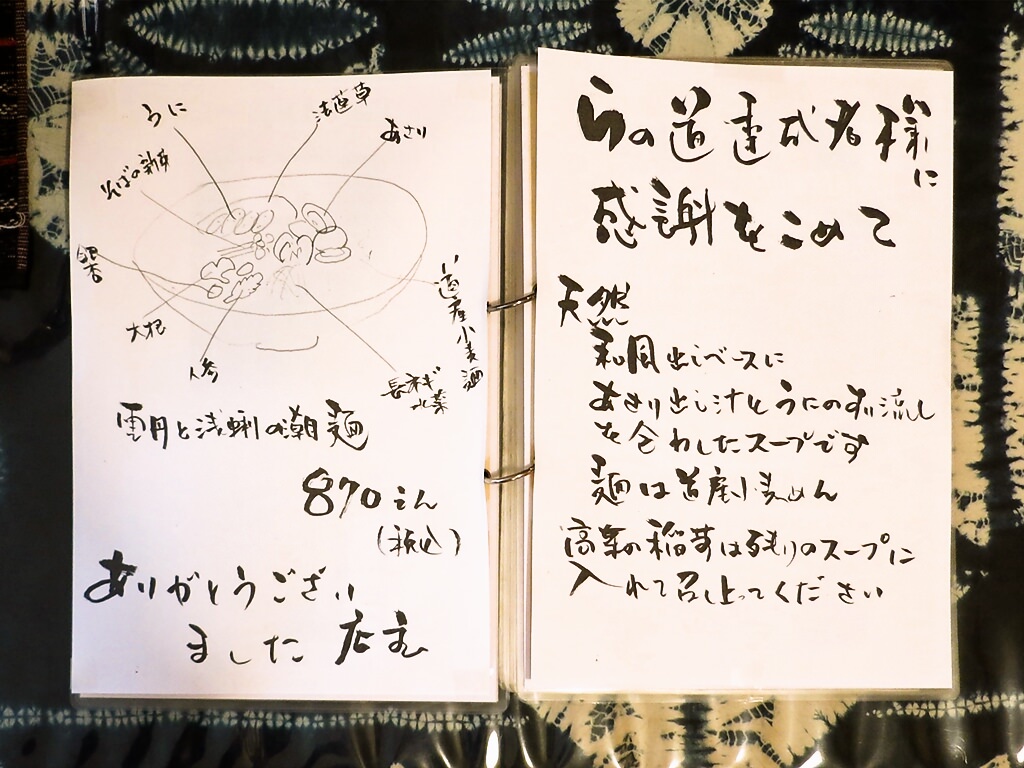 うに
法蓮草
あさり
そばの新芽
銀杏
大根
人参
長ネギ
水菜
道産小麦麺
雲丹と浅蜊の潮麺
870えん
(税込)
ありがとうござい
ました 店主
らの道達成者様に
感謝をこめて
天然
和風出しベースに
あさり出し汁とうにのすり流し
を合わしたスープです
麺は道産小麦めん
稲荷は残りのスープに
入れて召し上ってください